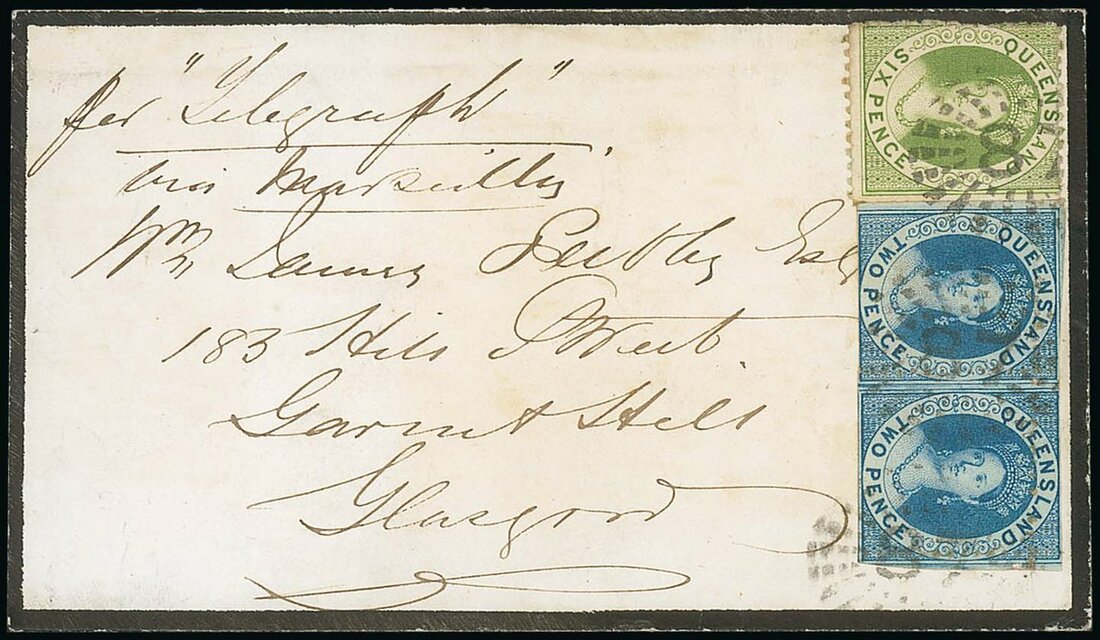 per "Telegraph"
via Marseilles
Wm James Esq
183 Hill St West
Garnet Hill
Glasgow
QUEENSLAND
SIX PENCE
QUEENSLAND
TWO PENCE
QUEENSLAND
TWO PENCE